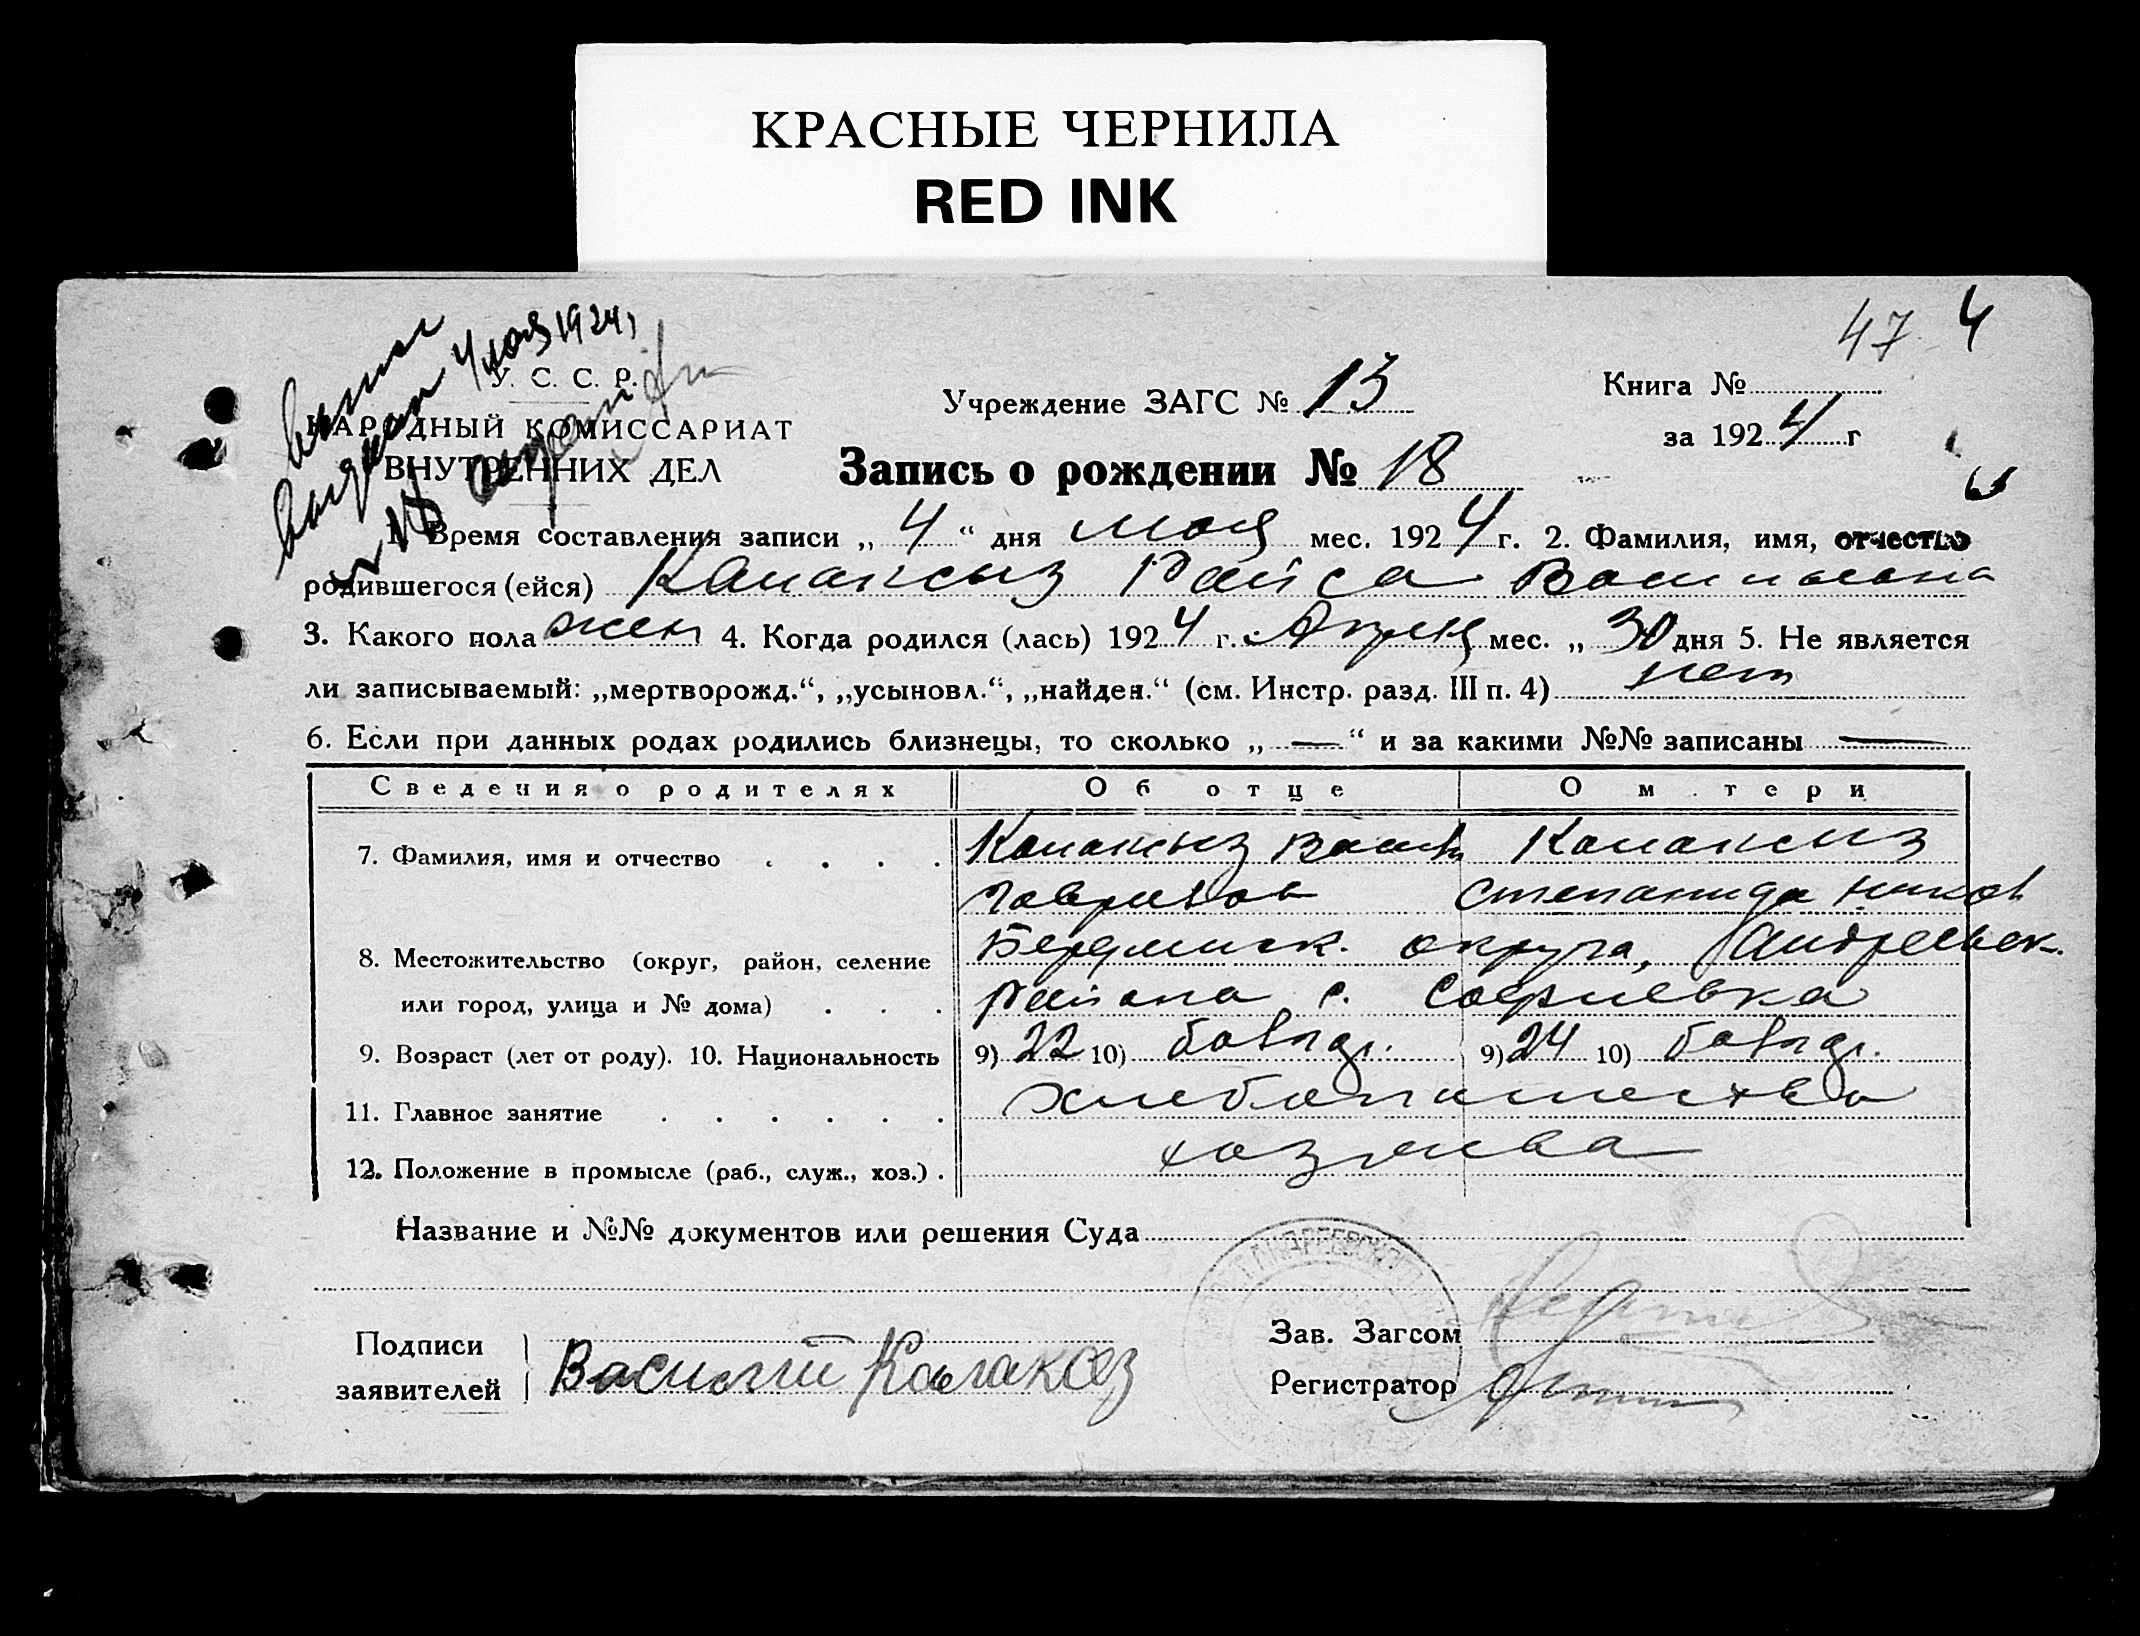 КРАСНЫЕ ЧЕРНИЛА
RED INK
47 4
выпис
выдан 4 мая 1924,
У. С. С. Р.
НАРОДНЫЙ КОМИССАРИАТ
ВНУТРЕННИХ ДЕЛ
N 18
Учреждение ЗАГС № 13
Книга №
за 1924 г
Запись о рождении № 18
1. Время составления записи „ 4 “ дня мая мес. 1924 г. 2. Фамилия, имя, отчество
родившегося (ейся) Калаксыз Раиса Васильевна
3. Какого пола жен 4. Когда родился (лась) 1924 г. Апреля мес. „ 30 дня 5. Не является
ли записываемый: „мертворожд.“, „усыновл.“, „найден.“ (см. Инстр. разд. III п. 4) нет
6. Если при данных родах родились близнецы, то сколько „ — “ и за какими №№ записаны —
Сведения о родителях Об отце О м.тери
7. Фамилия, имя и отчество Калаксыз Васил Калаксыз
Гаврилов Степанида Никол
8. Местожительство (округ, район, селение Бердянск. округа, Андреевск.
или город, улица и № дома) района с. Софиевка
9. Возраст (лет от роду). 10. Национальность 9) 22 10) болгар. 9) 24 10) болгар.
11. Главное занятие хлебопашество
12. Положение в промысле (раб., служ., хоз.) хозяева
Название и №№ документов или решения Суда
Подписи
заявителей Василий Калаксз
Зав. Загсом
Регистратор